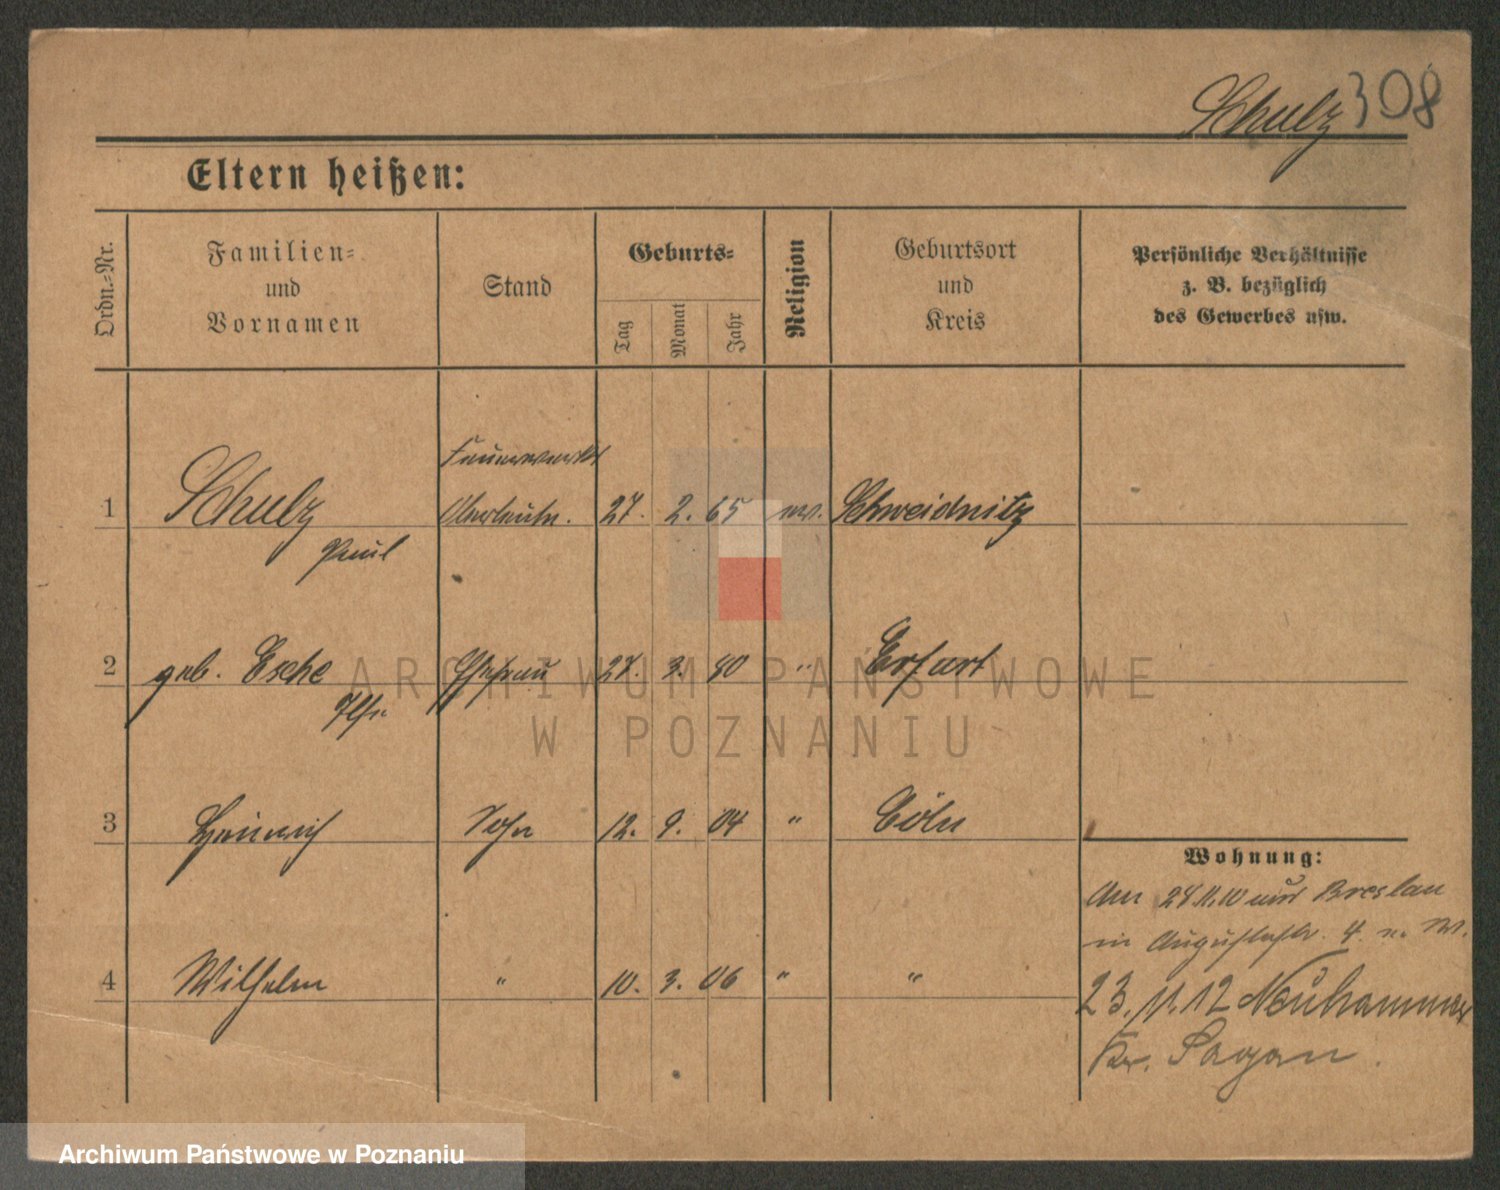 Schulz 308
Eltern heißen:
Ordn.-Nr.
Familien- und Vornamen
Stand
Geburts-
Tag
Monat
Jahr
Religion
Geburtsort und Kreis
Persönliche Verhältnisse
z. B. bezüglich
des Gewerbes usw.
Feuerwerks
1 Schulz Oberleutn. 27. 2. 65 ev. Schweidnitz
Paul
2 geb. Esche Ehefrau 27. 3. 80 " Erfurt
Ilse
3 Heinrich Sohn 12. 9. 04 " Cöln
4 Wilhelm " 10. 3. 06 " "
Wohnung:
Am 28 11. 10 aus Breslau
in Augustastr. 4.
23. 11. 12 Neuhammer
Kr. Sagan.
ARCHIWUM PAŃSTWOWE
W POZNANIU
Archiwum Państwowe w Poznaniu